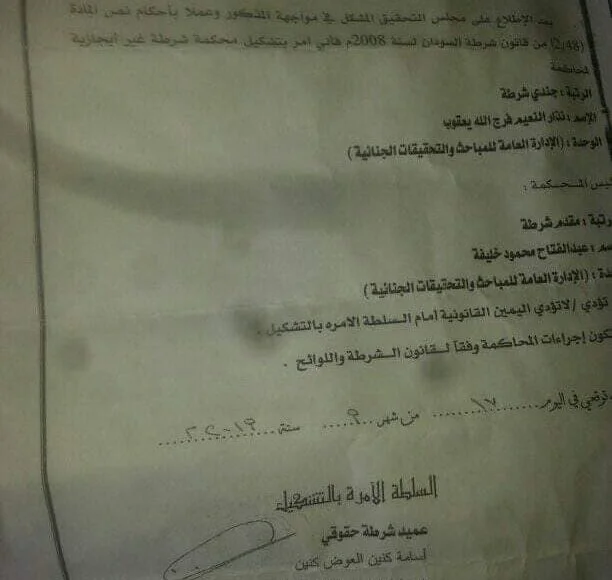 بعد الإطلاع على مجلس التحقيق المشكل في مواجهة المذكور وعملا بأحكام نص المادة
(2/48) من قانون شرطة السودان لسنة 2008م فأني امر بتشكيل محكمة شرطة غير ايجازية
لمحاكمة
الرتبة : جندي شرطة
الإسم : نذار النعيم فرج الله يعقوب
الوحدة : (الإدارة العامة للمباحث والتحقيقات الجنائية )
ئيس المحكمة :
رتبة : مقدم شرطة
سم : عبدالفتاح محمود خليفة
دة : (الإدارة العامة للمباحث والتحقيقات الجنائية )
تؤدي / لاتؤدي اليمين القانونية أمام السلطة الامره بالتشكيل .
تكون إجراءات المحاكمة وفقاً لقانون الشرطة واللوائح .
في اليوم ١٧ من شهر ٩ سنة ٢٠١٩
السلطة الآمرة بالتشكيل
عميد شرطة حقوقي
أسامة كنين العوض كنين